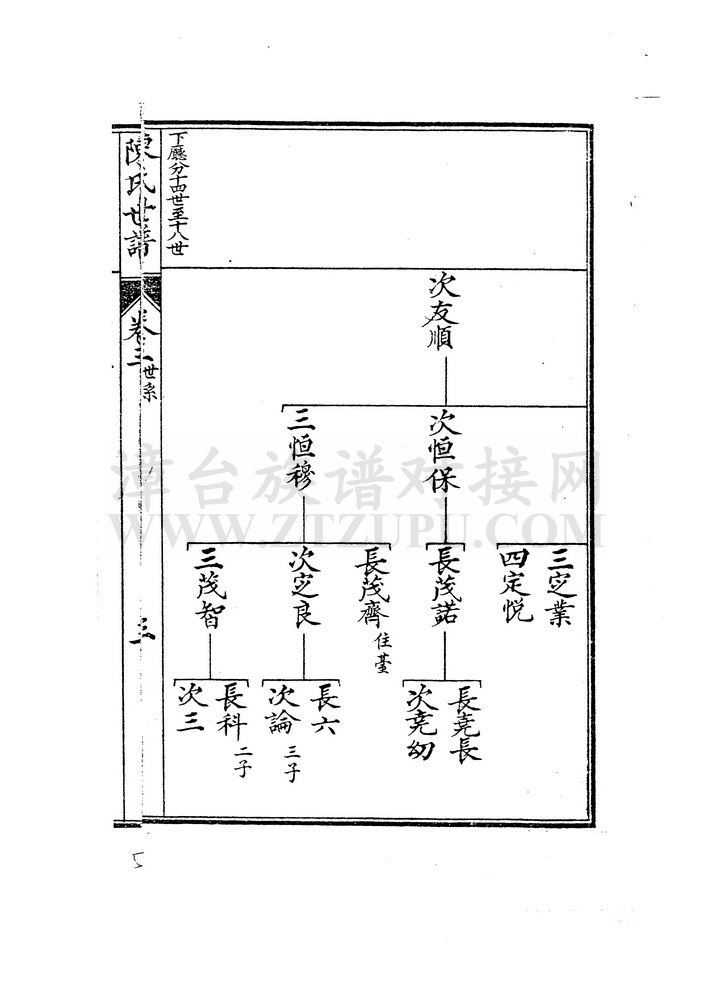 下廳分十四世至十八世
次友順
次恒保
三恒穆
三定業
四定悦
長茂諾
長茂齊 住臺
次定良
三茂智
長堯長
次堯幼
長六
次論 三子
長科 二子
次三
陳氏世譜
卷三 世系
三
5
漳台族谱对接网
WWW.ZTZUPU.COM